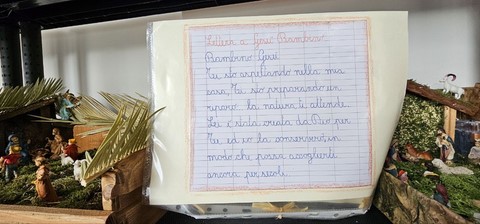 Lettera a Gesù Bambino
Bambino Gesù
Ti sto aspettando nella mia
casa. Ti sto preparando un
riparo la natura ti attende
Lei è stata creata da Dio per
Te ed io la conserverò in
modo che possa accoglierti
ancora per secoli.